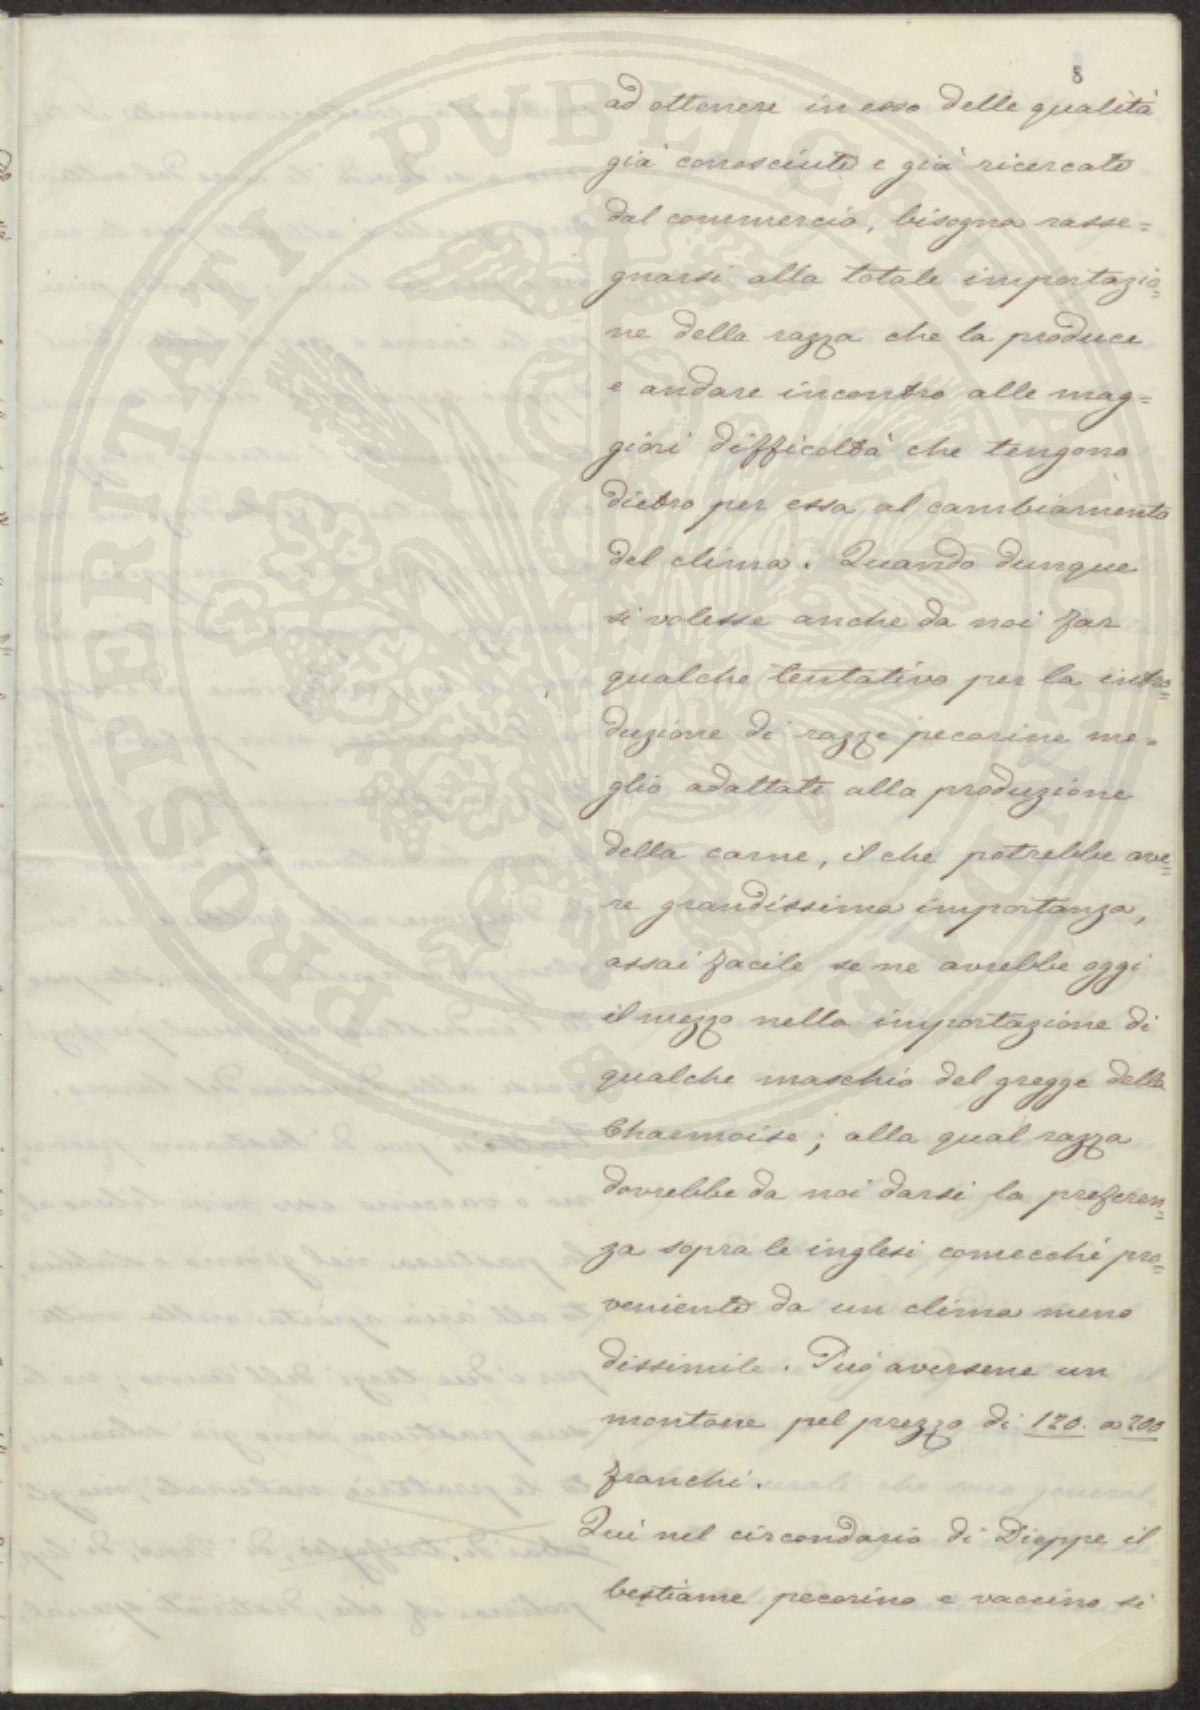 8
ad ottenere in esso delle qualità
già conosciute e già ricercate
dal commercio, bisogna rasse=
gnarsi alla totale importazio=
ne della razza che la produce
e andare incontro alle mag=
giori difficoltà che tengono
dietro per essa al cambiamento
del clima. Quando dunque
si volesse anche da noi far
qualche tentativo per la intro=
duzione di razze pecorine me=
glio adattate alla produzione
della carne, il che potrebbe ave=
re grandissima importanza,
assai facile se ne avrebbe oggi
il mezzo nella importazione di
qualche maschio del gregge della
Charmoise; alla qual razza
dovrebbe da noi darsi la preferen=
za sopra le inglesi comecché pro=
veniente da un clima meno
dissimile. Può aversene un
montone pel prezzo di 120. a 200
franchi.
Qui nel circondario di Dieppe il
bestiame pecorino e vaccino si
PROSPERITATI PUBLICAE AUGENDAE